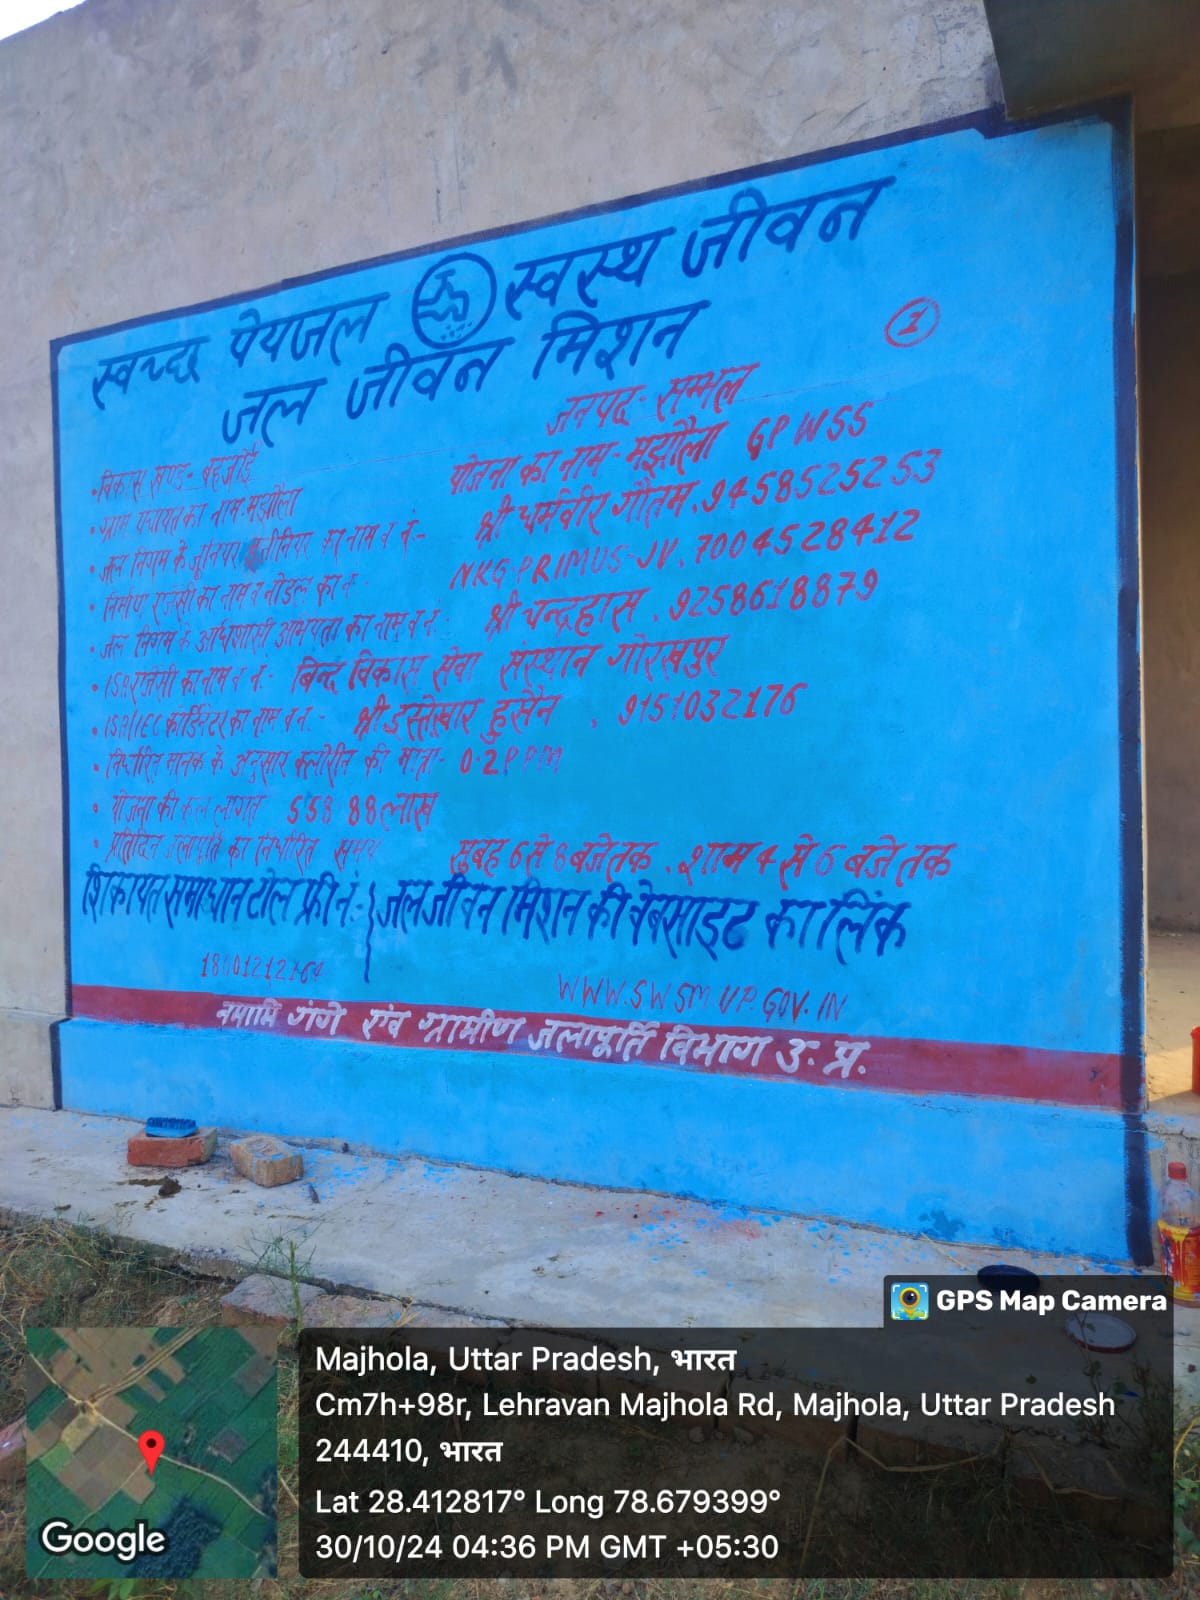 स्वच्छ पेयजल स्वस्थ जीवन
जल जीवन मिशन
1
जनपद - सम्भल
• विकास खण्ड - बहजोई
योजना का नाम - मझौला GPWSS
• ग्राम पंचायत का नाम - मझौला
• जल निगम के जूनियर इंजीनियर का नाम व नं:- श्री धर्मवीर गौतम . 9458525253
• निर्माण एजेंसी का नाम व नोडल का नं: NKG-PRIMUS-JV. 7004528412
• जल निगम के अधिशासी अभियंता का नाम व नं: श्री चन्द्रहास . 9258618879
• ISA एजेंसी का नाम व नं:- बिन्द विकास सेवा संस्थान गोरखपुर
• ISA/IEC कार्डिनेटर का नाम व नं:- श्री इस्तेखार हुसैन . 9151032176
• निर्धारित मानक के अनुसार क्लोरीन की मात्रा- 0.2PPM
• योजना की कुल लागत 558.88 लाख
• प्रतिदिन जलापूर्ति का निर्धारित समय सुबह 6 से 8 बजे तक . शाम 4 से 6 बजे तक
शिकायत समाधान टोल फ्री नं:- जल जीवन मिशन की वेबसाइट का लिंक
WWW.SWSM.UP.GOV.IN
नमामि गंगे एंव ग्रामीण जलापूर्ति विभाग उ. प्र.
GPS Map Camera
Majhola, Uttar Pradesh, भारत
Cm7h+98r, Lehravan Majhola Rd, Majhola, Uttar Pradesh
244410, भारत
Lat 28.412817° Long 78.679399°
30/10/24 04:36 PM GMT +05:30
Google